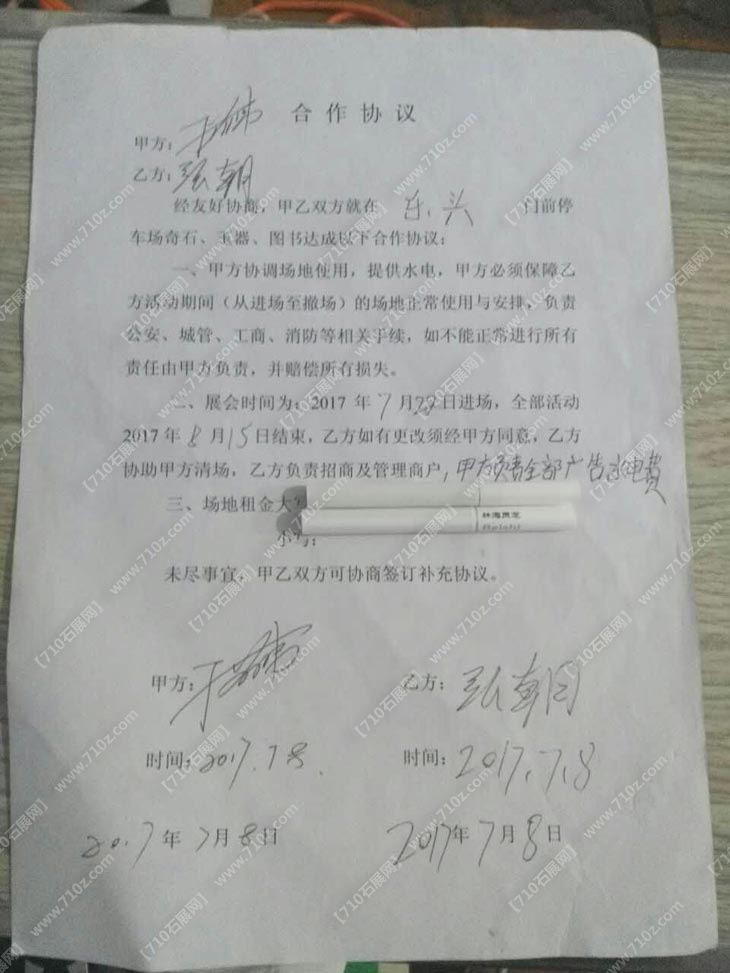 合作协议
甲方：
乙方：张朝
经友好协商，甲乙双方就在 东头 门前停
车场奇石、玉器、图书达成以下合作协议：
一、甲方协调场地使用，提供水电，甲方必须保障乙
方活动期间（从进场至撤场）的场地正常使用与安排，负责
公安、城管、工商、消防等相关手续，如不能正常进行所有
责任由甲方负责，并赔偿所有损失。
二、展会时间为：2017 年 7 月 28 日进场，全部活动
2017 年 8 月 15 日结束，乙方如有更改须经甲方同意，乙方
协助甲方清场，乙方负责招商及管理商户，甲方负责全部广告水电费
三、场地租金大写
小写：
林海灵芝
未尽事宜，甲乙双方可协商签订补充协议。
甲方： 乙方：张朝
时间：2017.7.8 时间：2017.7.8
2017 年 7 月 8 日 2017 年 7 月 8 日
【710石展网】
www.710z.com